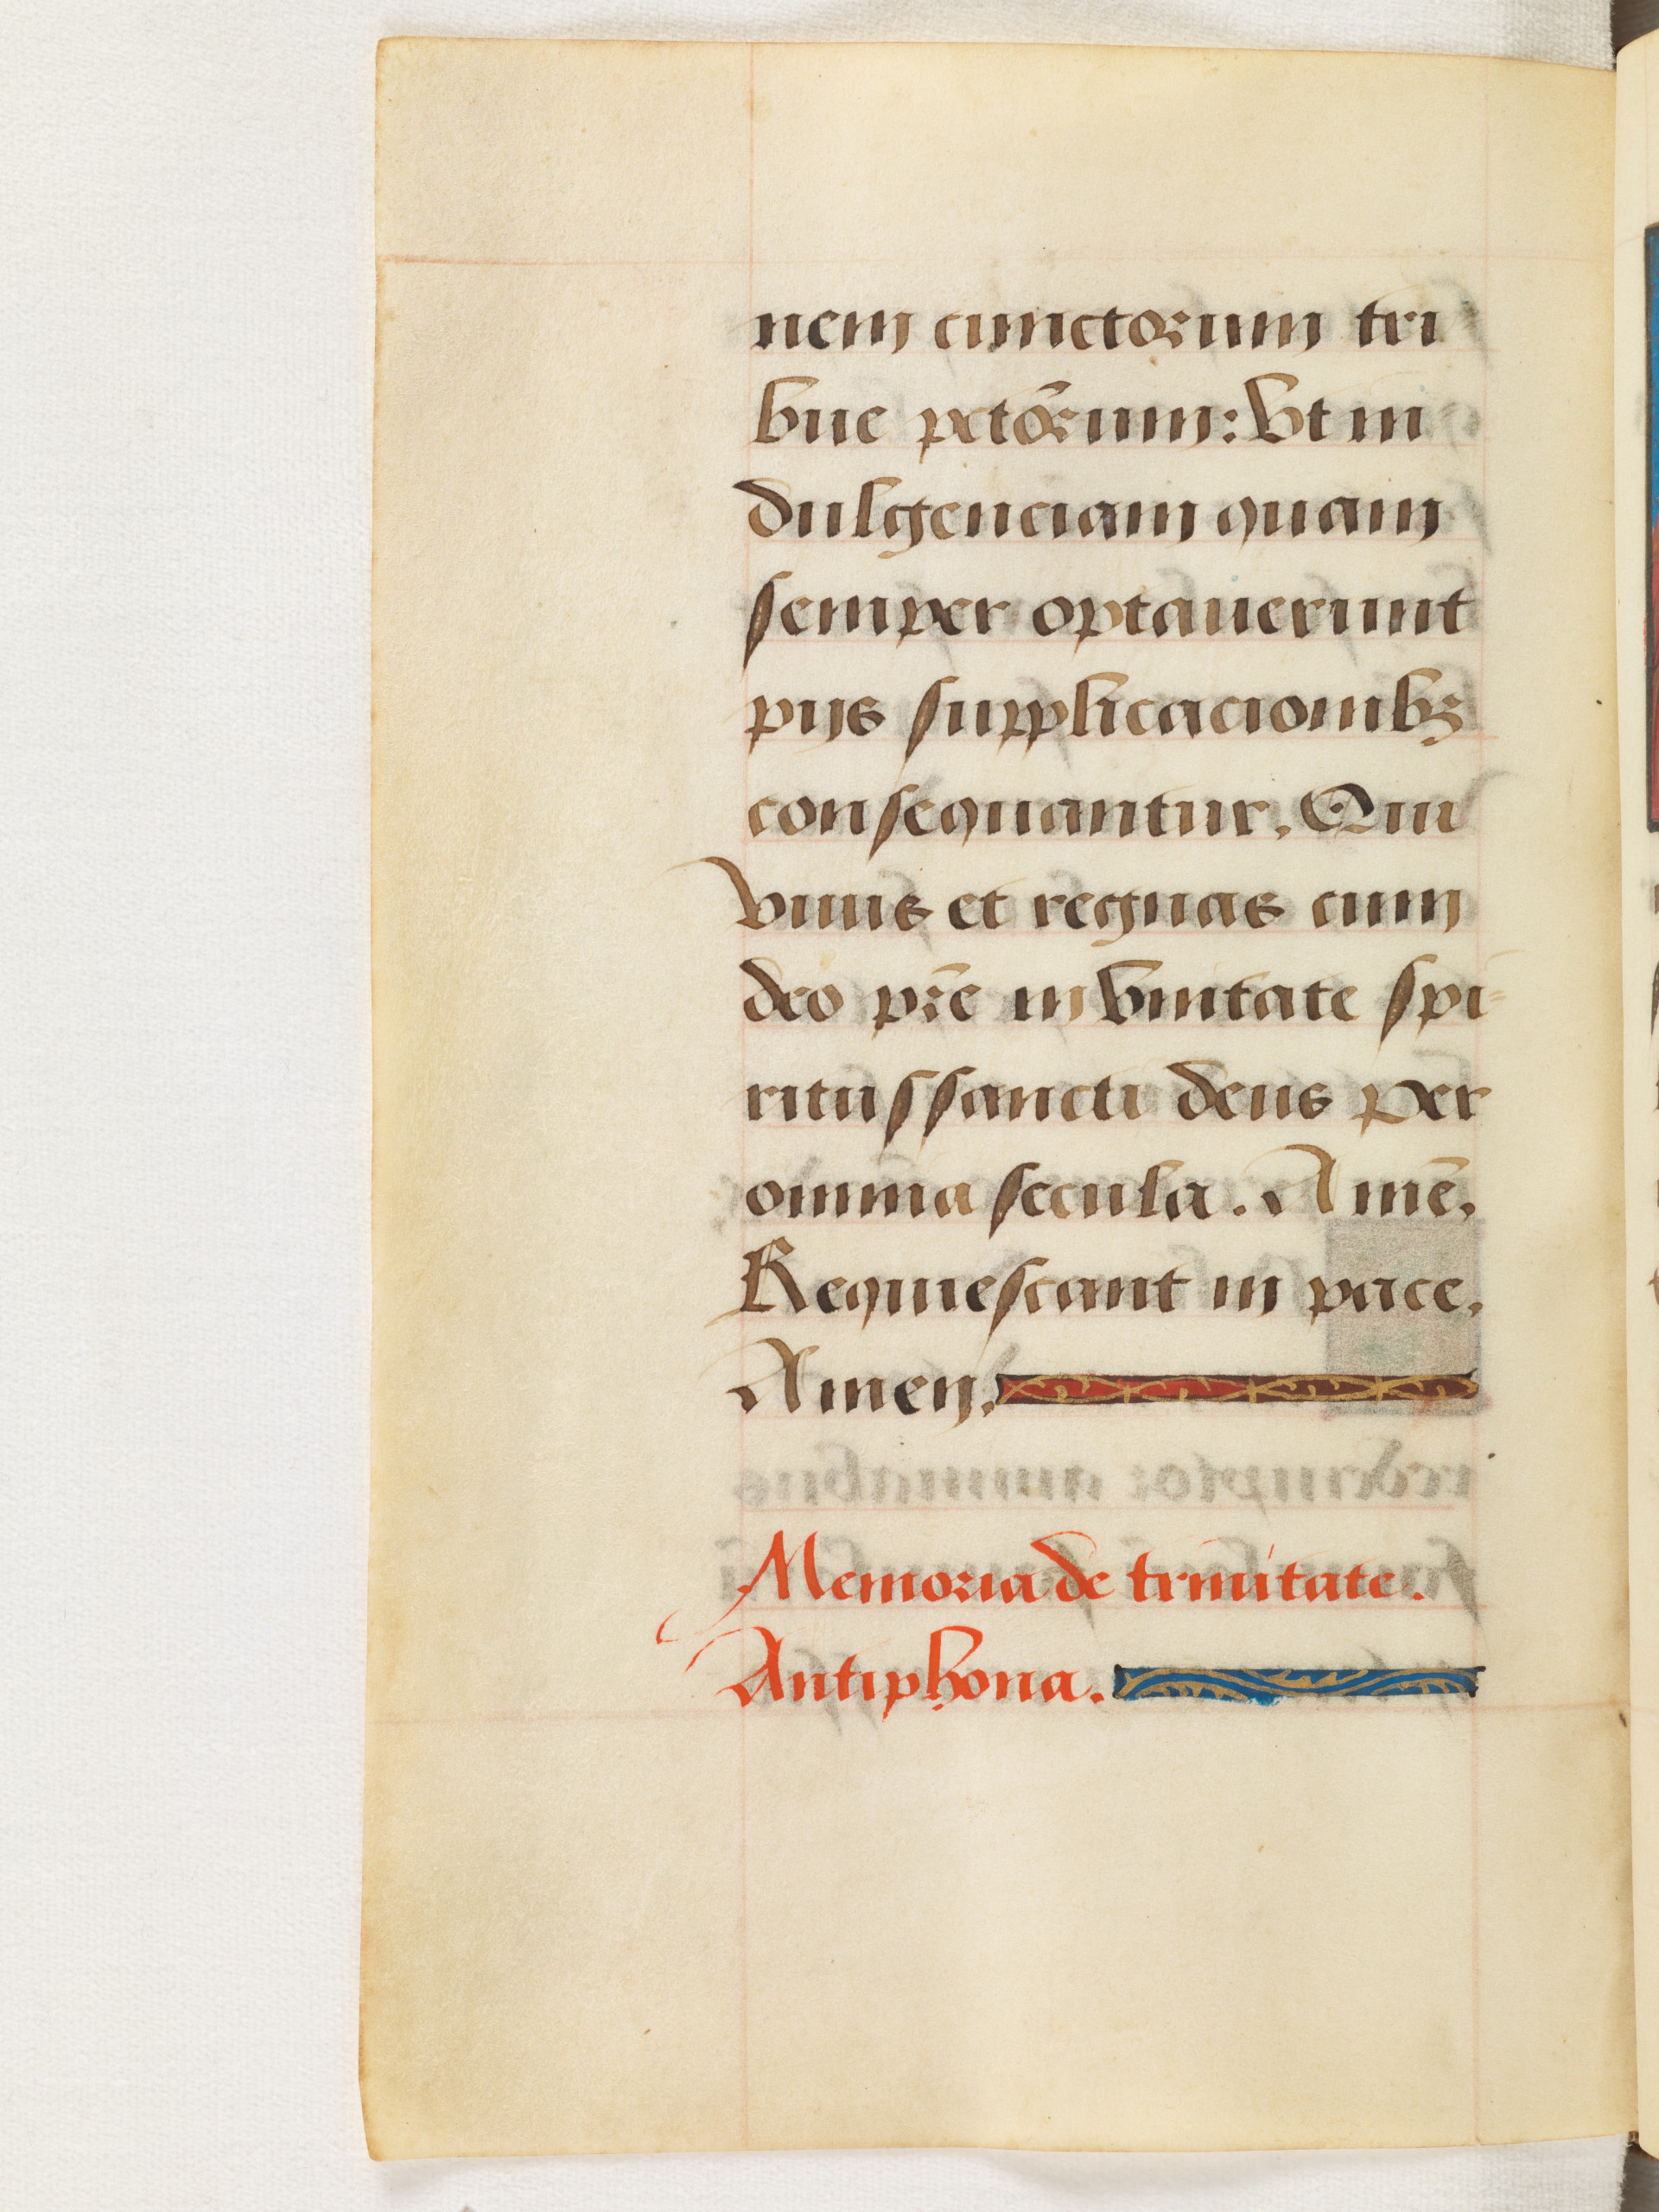 nem cunctorum tri
bue pctõrum: Vt in
dulgenciam quam
semper optauerunt
pijs supplicacionibꝫ
consequantur. Qui
viuis et regnas cum
deo pr̄e in vnitate spi-
ritussancti deus per
omnia secula. Amē.
Requiescant in pace.
Amen.
Memoria de trinitate.
Antiphona.